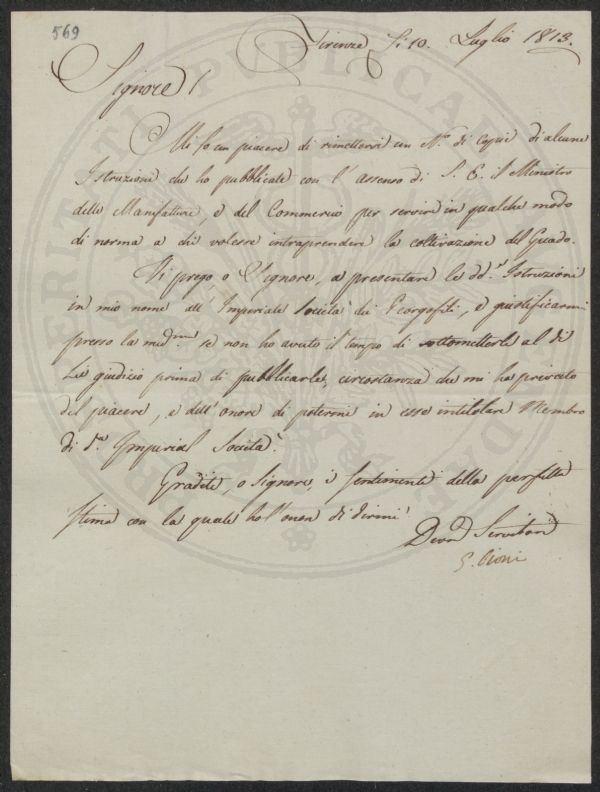 569
Firenze li 10. Luglio 1813.
Signore!
Mi fo un piacere di rimettervi un N.º di Copie di alcune
Istruzioni che ho pubblicate con l'assenso di S. E. il Ministro
delle Manifatture, e del Commercio per servire in qualche modo
di norma a chi volesse intraprendere la coltivazione del Guado.
Vi prego, o Signore, a presentare le dd.e Istruzioni
in mio nome all'Imperiale Società dei Georgofili, e giustificarmi
presso la med.ma se non ho avuto il tempo di sottometterle al di
Lei giudizio prima di pubblicarle, circostanza che mi ha privato
del piacere, e dell'onore di potermi in esse intitolare Membro
di d.a Imperial Società.
Gradite, o Signore, i sentimenti della perfetta
stima con la quale ho l'onor di dirmi
Dev.o Servitore
G. Cioni